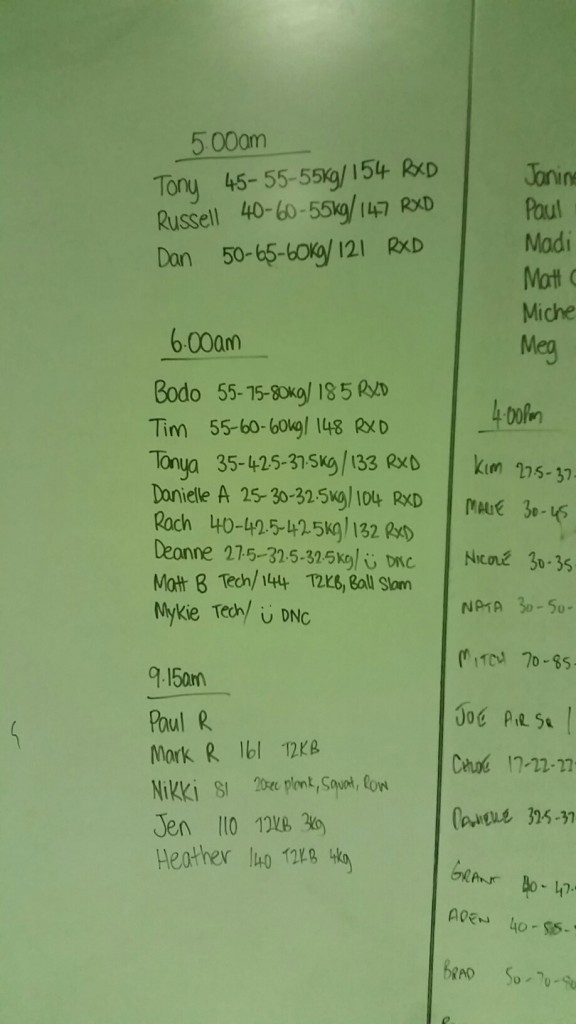 5.00am
Tony 45-55-55kg/154 RXD
Russell 40-60-55kg/147 RXD
Dan 50-65-60kg/121 RXD
6.00am
Bodo 55-75-80kg/185 RXD
Tim 55-60-60kg/148 RXD
Tonya 35-42.5-37.5kg/133 RXD
Danielle A 25-30-32.5kg/104 RXD
Rach 40-42.5-42.5kg/132 RXD
Deanne 27.5-32.5-32.5kg/ DNC
Matt B Tech/144 T2KB, Ball Slam
Mykie Tech/ DNC
9.15am
Paul R
Mark R 161 T2KB
Nikki 81 20sec plank, Squat, Row
Jen 110 T2KB 3kg
Heather 140 T2KB 4kg
Janine
Paul
Madi
Matt
Miche
Meg
4.00pm
KIM 27.5-37.
MARIE 30-45
NICOLE 30-35
NATA 30-50-
MITCH 70-85-
JOE AIR SQ
CHLOE 17-22-22
DANIELLE 32.5-37
GRANT 40-47.
ADEN 40-55-
BRAD 50-70-80